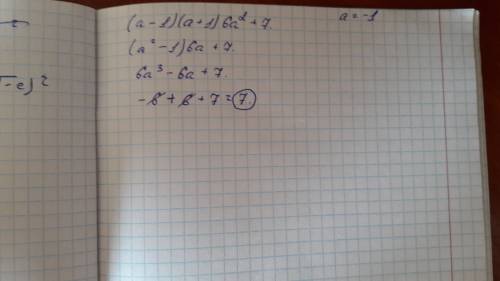 (a-1)(a+1)6a²+7. a=-1
(a²-1)6a+7.
6a³-6a+7.
-6+6+7=7.
-e)²